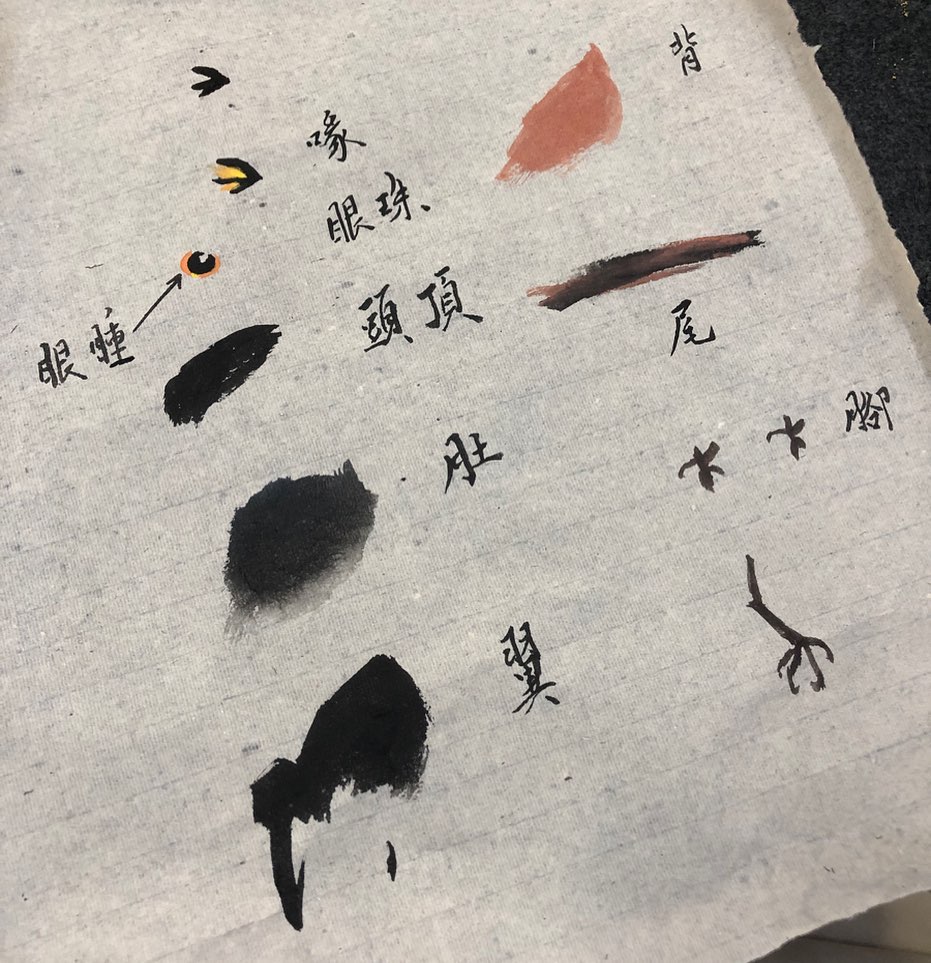 喙
眼珠、
眼瞳
頭頂
肚
翼
背
尾
腳